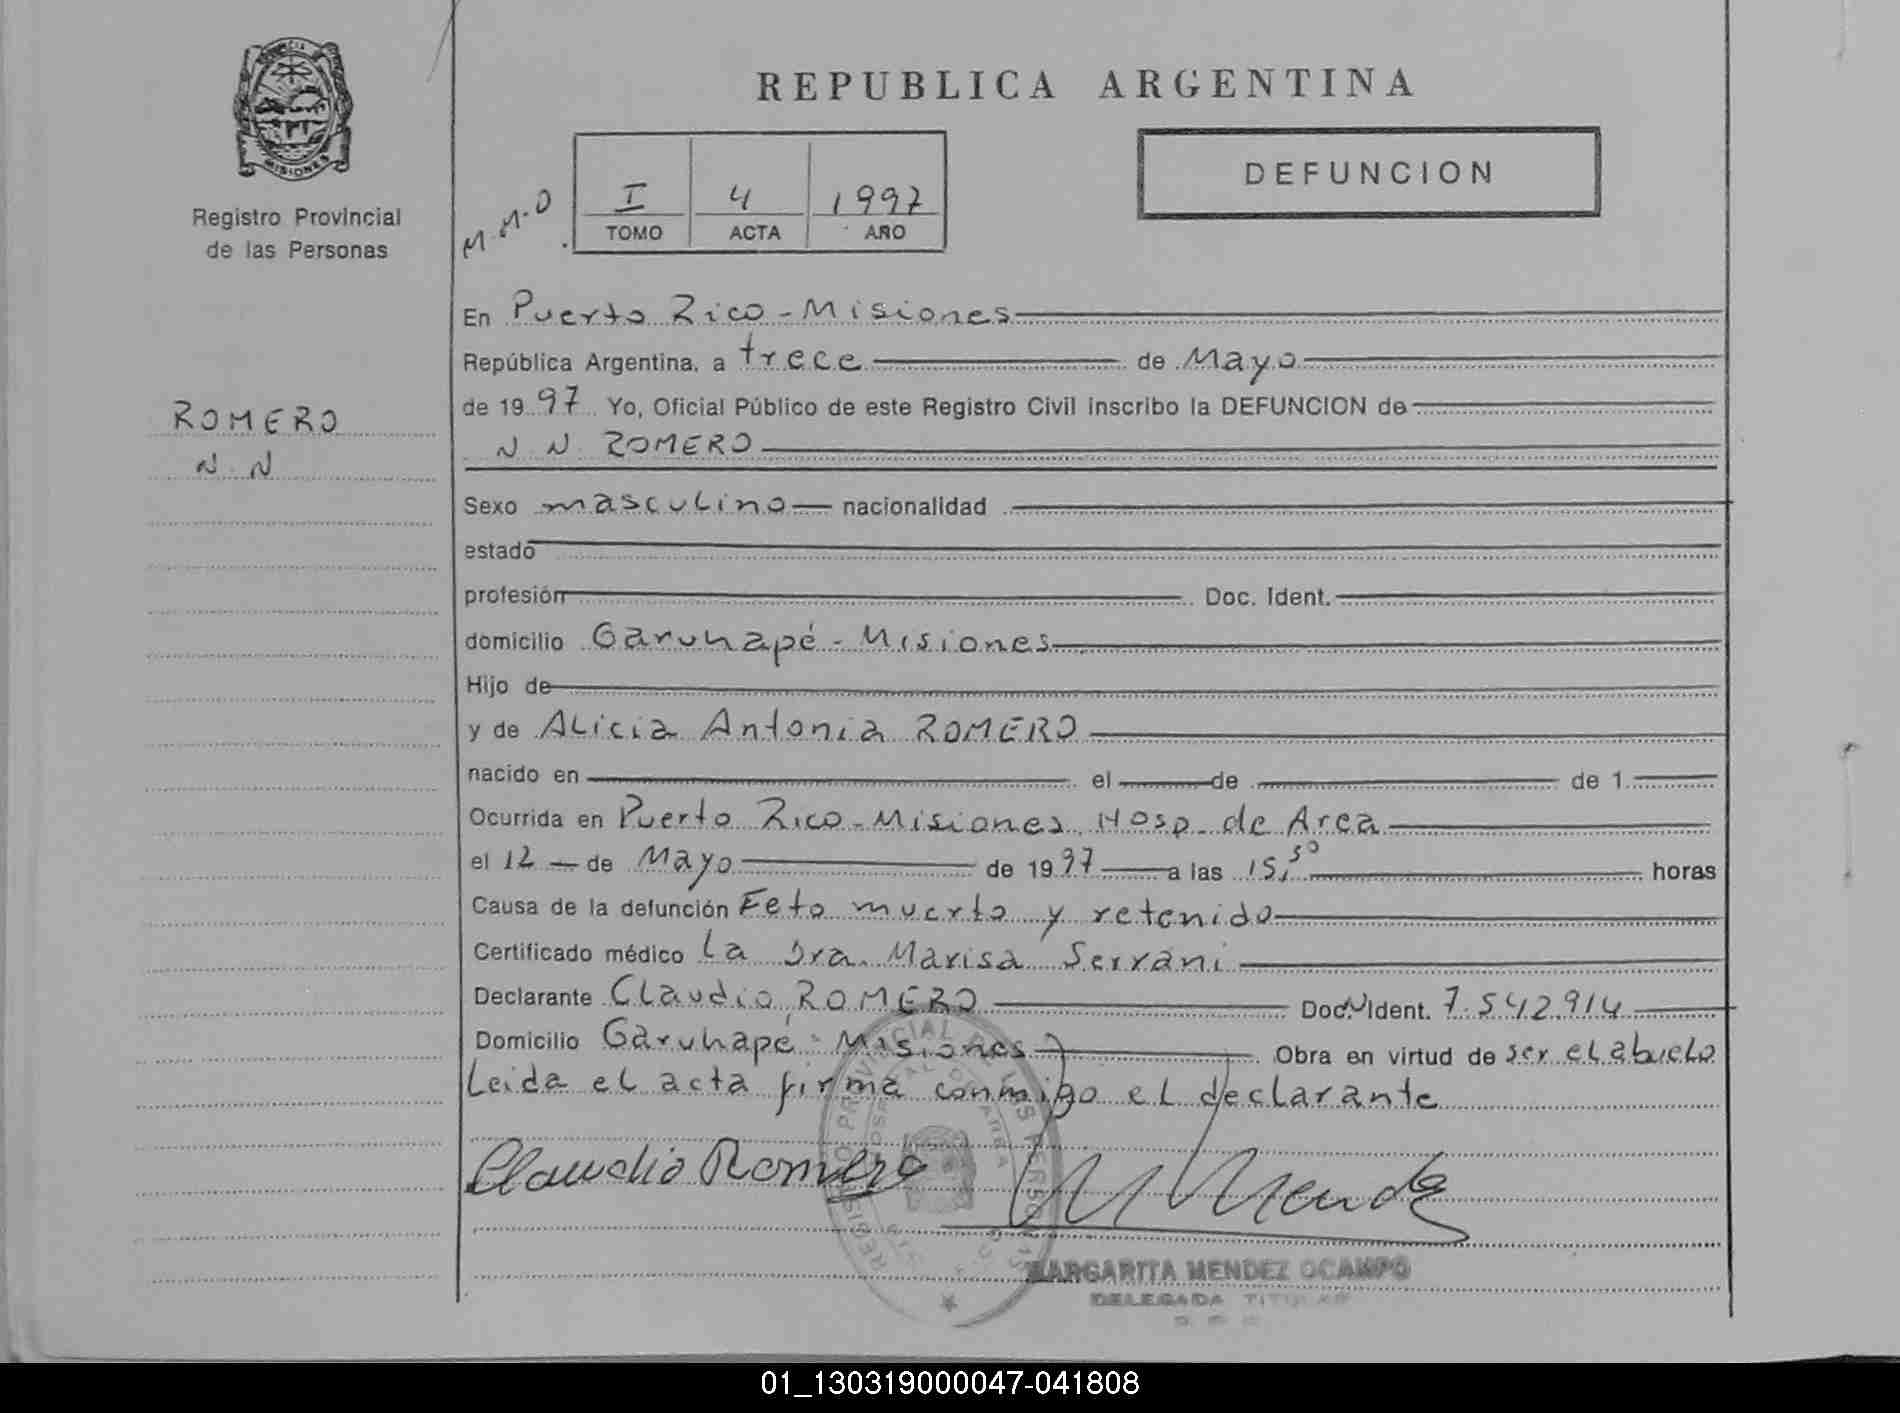 PROVINCIA
MISIONES
Registro Provincial
de las Personas
ROMERO
N. N
REPUBLICA ARGENTINA
M.M.O
I 4 1997
TOMO ACTA AÑO
DEFUNCION
En Puerto Rico - Misiones
República Argentina, a trece de Mayo
de 1997 Yo, Oficial Público de este Registro Civil inscribo la DEFUNCION de
N. N. ROMERO
Sexo masculino nacionalidad
estado
profesión Doc. Ident.
domicilio Garuhapé - Misiones
Hijo de
y de Alicia Antonia ROMERO
nacido en el de de 1
Ocurrida en Puerto Rico - Misiones. Hosp. de Area
el 12 de Mayo de 1997 a las 15,30 horas
Causa de la defunción Feto muerto y retenido
Certificado médico La Dra. Marisa Serrani
Declarante Claudio ROMERO Doc. Ident. 7.542.914
Domicilio Garuhapé - Misiones Obra en virtud de ser el abuelo
Leida el acta firma conmigo el declarante
Claudio Romero M Mendez
MARGARITA MENDEZ OCAMPO
DELEGADA TITULAR
01_130319000047-041808